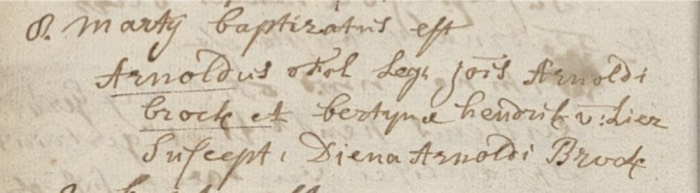 8. marty baptizatus est
Arnoldus fil Leg. Jois Arnoldi
brock et bertynæ hendrik v: Lier
Suscept. Diena Arnoldi Brock